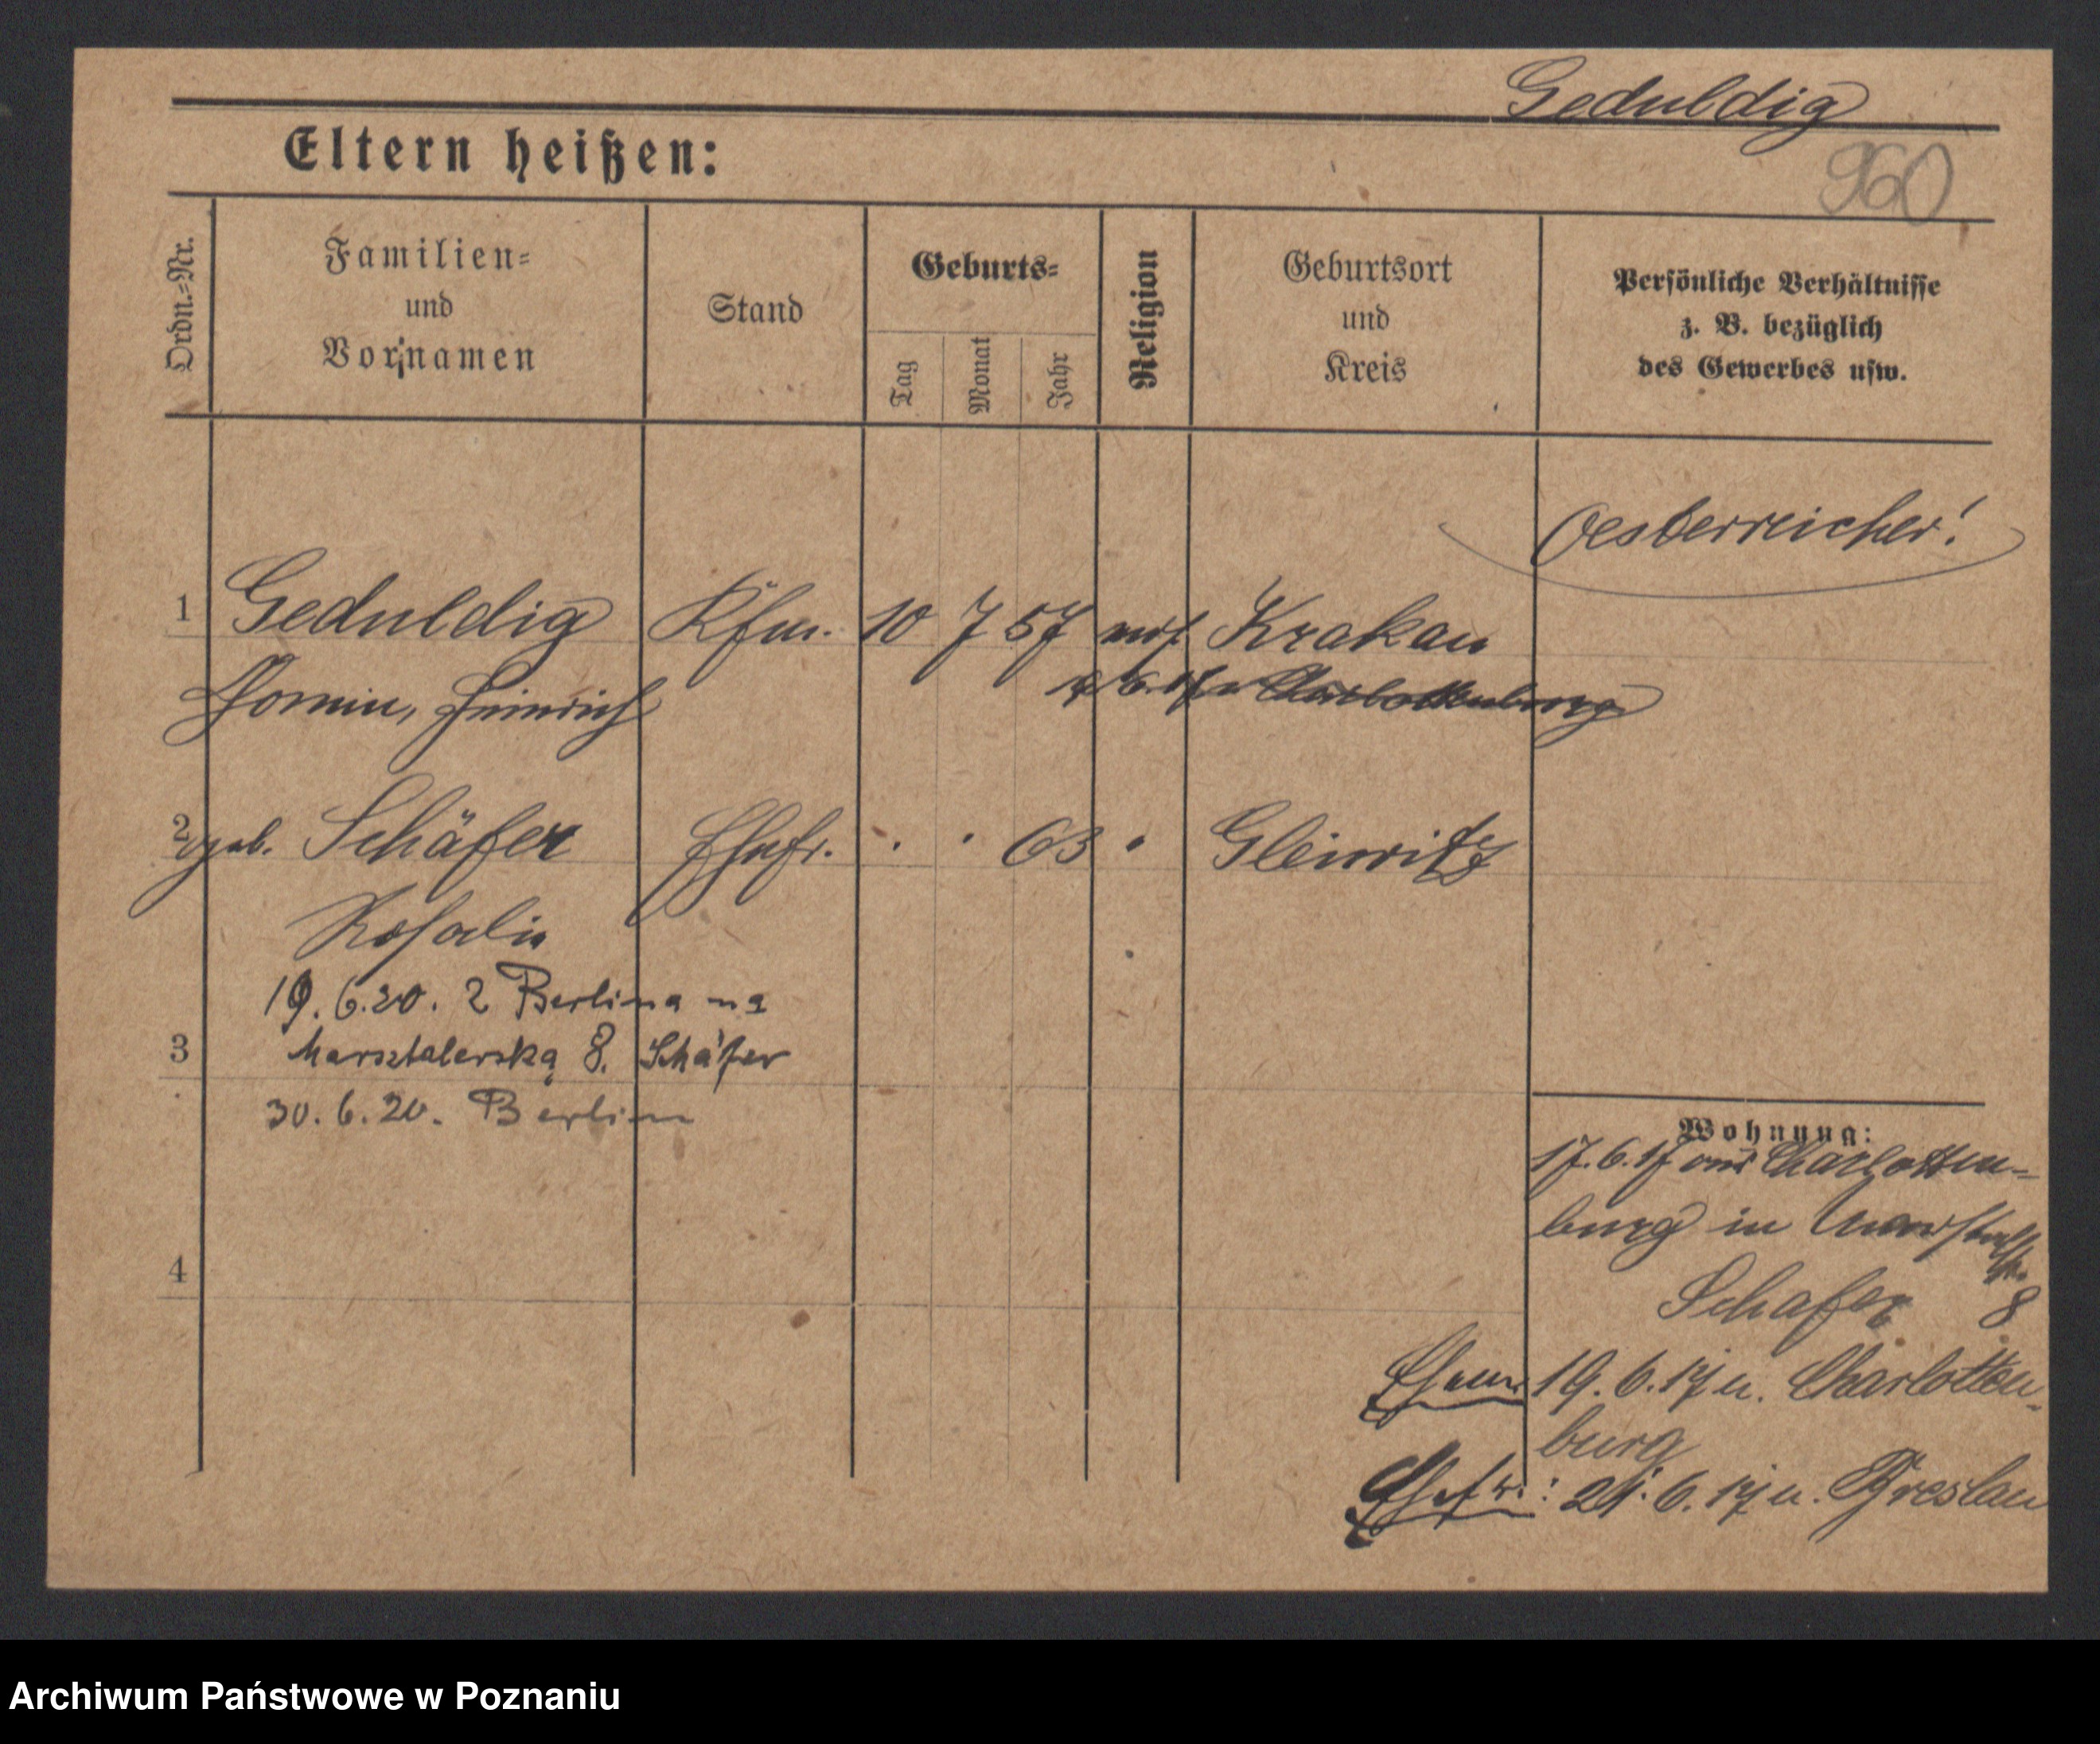 Geduldig
960
Eltern heißen:
Ordn.=Nr.
Familien=
und
Vornamen
Stand
Geburts=
Tag
Monat
Jahr
Religion
Geburtsort
und
Kreis
Persönliche Verhältnisse
z. B. bezüglich
des Gewerbes usw.
Oesterreicher!
1 Geduldig Kfm. 10 7 57 mos. Krakau
Heinrich
Charlottenburg
2 geb. Schäfer Ehefr. . . 63 . Gleiwitz
Rosalie
19.6.20. z Berlina na
3 Marsztalerską 8. Schäfer
30.6.20. Berlin
4
Wohnung:
17.6.17 aus Charlotten-
burg in Marstallstr.
Schäfer 8
Ehem. 19.6.17 n. Charlotten-
burg
Ehefr.: 21.6.17 n. Breslau
Archiwum Państwowe w Poznaniu